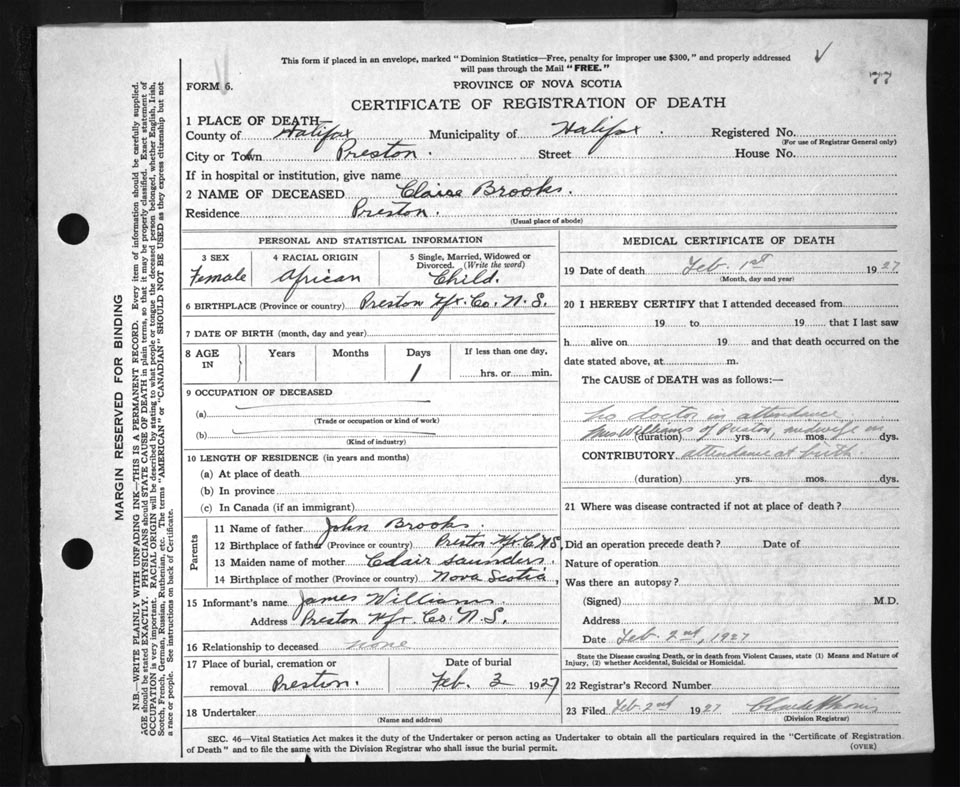 This form if placed in an envelope, marked "Dominion Statistics—Free, penalty for improper use $300," and properly addressed
will pass through the Mail "FREE."
77
FORM 6.
PROVINCE OF NOVA SCOTIA
CERTIFICATE OF REGISTRATION OF DEATH
1 PLACE OF DEATH
County of Halifax Municipality of Halifax. Registered No.
(For use of Registrar General only)
City or Town Preston. Street House No.
If in hospital or institution, give name
2 NAME OF DECEASED Claire Brooks.
Residence Preston.
(Usual place of abode)
PERSONAL AND STATISTICAL INFORMATION
3 SEX 4 RACIAL ORIGIN 5 Single, Married, Widowed or Divorced. (Write the word)
Female African Child.
6 BIRTHPLACE (Province or country) Preston Hfx. Co. N.S.
7 DATE OF BIRTH (month, day and year)
8 AGE IN Years Months Days If less than one day,
1 hrs. or min.
9 OCCUPATION OF DECEASED
(a)
(Trade or occupation or kind of work)
(b)
(Kind of industry)
10 LENGTH OF RESIDENCE (in years and months)
(a) At place of death
(b) In province
(c) In Canada (if an immigrant)
Parents
11 Name of father John Brooks.
12 Birthplace of father (Province or country) Preston Hfx. C. N.S.
13 Maiden name of mother Clair Saunders.
14 Birthplace of mother (Province or country) Nova Scotia,
15 Informant's name James Williams.
Address Preston Hfx Co. N.S.
16 Relationship to deceased None
17 Place of burial, cremation or Date of burial
removal Preston. Feb. 3 1927
18 Undertaker
(Name and address)
MEDICAL CERTIFICATE OF DEATH
19 Date of death Feb. 1st 1927
(Month, day and year)
20 I HEREBY CERTIFY that I attended deceased from
19 to 19 that I last saw
h alive on 19 and that death occurred on the
date stated above, at m.
The CAUSE of DEATH was as follows:—
No doctor in attendance
Mrs Williams of Preston, midwife in
(duration) yrs. mos. dys.
CONTRIBUTORY attendance at birth.
(duration) yrs. mos. dys.
21 Where was disease contracted if not at place of death?
Did an operation precede death? Date of
Nature of operation
Was there an autopsy?
(Signed) M.D.
Address
Date Feb 2nd, 1927
State the Disease causing Death, or in death from Violent Causes, state (1) Means and Nature of
Injury, (2) whether Accidental, Suicidal or Homicidal.
22 Registrar's Record Number
23 Filed Feb 2nd 1927
(Division Registrar)
SEC. 46—Vital Statistics Act makes it the duty of the Undertaker or person acting as Undertaker to obtain all the particulars required in the "Certificate of Registration
of Death" and to file the same with the Division Registrar who shall issue the burial permit.
(OVER)
MARGIN RESERVED FOR BINDING
N.B.—WRITE PLAINLY WITH UNFADING INK—THIS IS A PERMANENT RECORD. Every item of information should be carefully supplied.
AGE should be stated EXACTLY. PHYSICIANS should STATE CAUSE OF DEATH in plain terms, so that it may be properly classified. Exact statement of
OCCUPATION is very important. RACIAL ORIGIN will be described by stating to what people or tongue the deceased person belonged, whether English, Irish,
Scotch, French, German, Russian, Ruthenian, etc. The terms "AMERICAN" or "CANADIAN" SHOULD NOT BE USED as they express citizenship but not
a race or people. See instructions on back of Certificate.